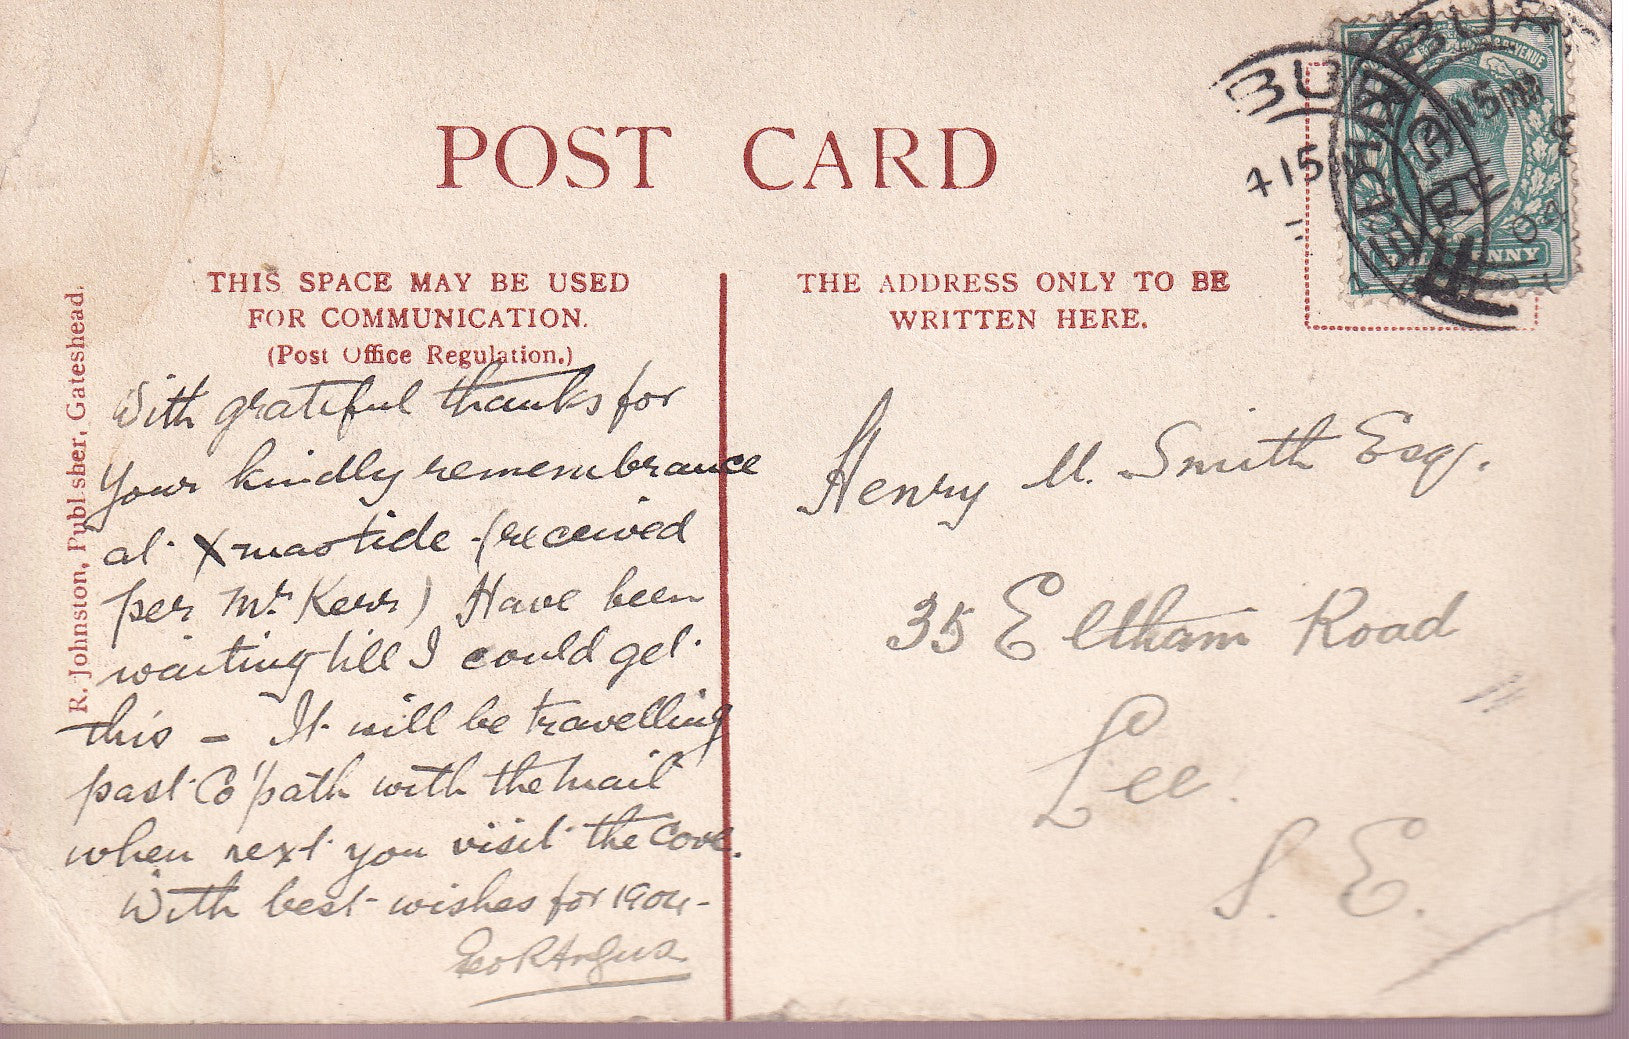 POST CARD
THIS SPACE MAY BE USED
FOR COMMUNICATION.
(Post Office Regulation.)
THE ADDRESS ONLY TO BE
WRITTEN HERE.
R. Johnston, Publisher, Gateshead.
With grateful thanks for
Your kindly remembrance
at Xmastide (received
per Mr Kerr) Have been
waiting till I could get
this – It will be travelling
past Co'path with the mail
when next you visit the Cove.
With best wishes for 1904 –
Geo R Angus
Henry M. Smith Esqr.
35 Eltham Road
Lee.
S. E.
EDINBURGH
4 15
15 PM
04